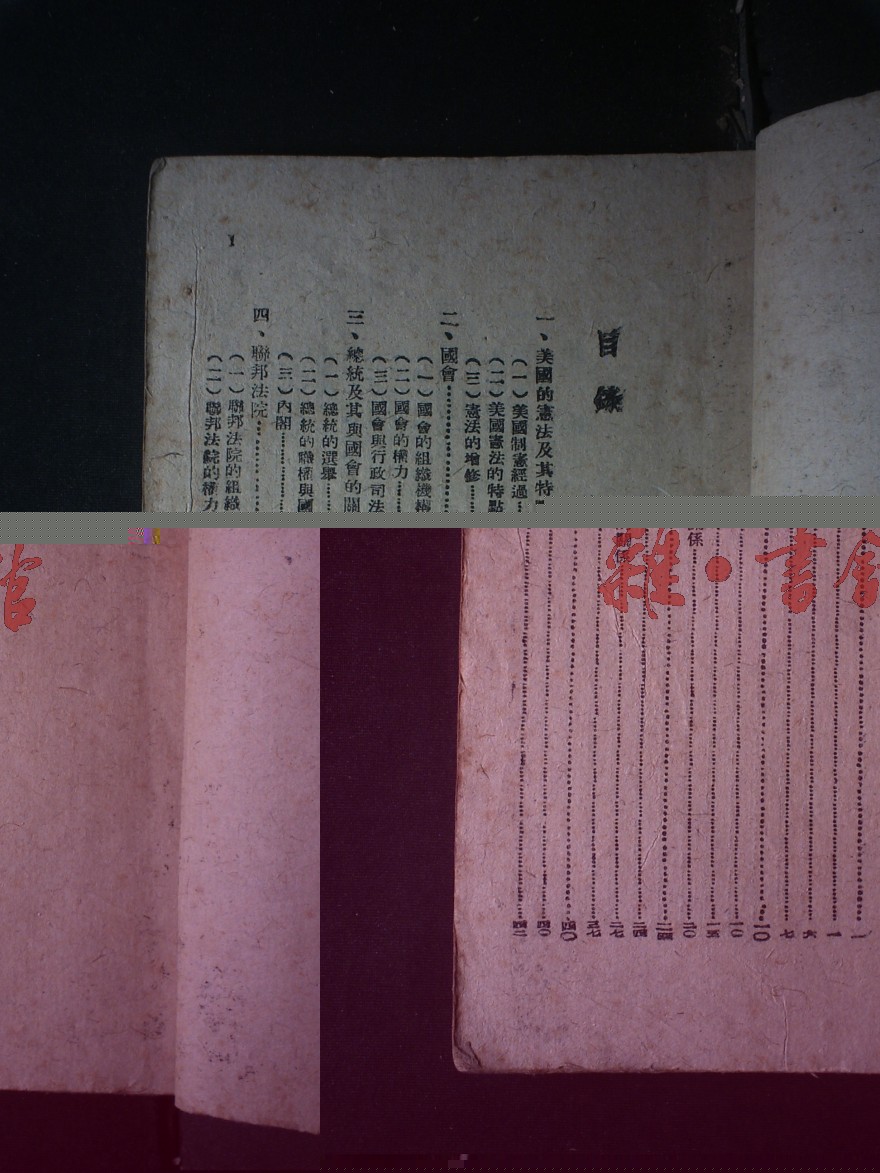 目錄
一、美國的憲法及其特
(一)美國制憲經過
(二)美國憲法的特點
(三)憲法的增修
二、國會
(一)國會的組織機構
(二)國會的權力
(三)國會與行政司法
三、總統及其與國會的關
(一)總統的選舉
(二)總統的職權與國
(三)內閣
四、聯邦法院
(一)聯邦法院的組織
(二)聯邦法院的權力
一
一
六
七
一〇
一〇
一五
係 二〇
二四
二四
關係 二七
三七
四〇
四〇
四二
雜・書館